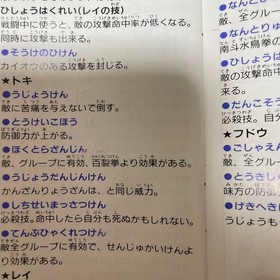 ひしょうはくれい(レイの技)
戦闘中に使うと、敵の攻撃命中率が低くなる。
同時に攻撃も出来る。
●そうけのひけん
カイオウのある攻撃を封じる。
★トキ
●うじょうけん
敵に苦痛を与えないで倒す。
●とうけいこほう
防御力が上がる。
●ほくとさらしんけん
敵、グループに有効、百裂拳より効果がある。
●うじょうだんじんけん
かんざんりょうざんは、と同じ威力。
●しちせいまっさつけん
必殺技。命中したら自分も死ぬかもしれない。
●てんぶひゃくれつけん
敵全グループに有効で、せんじゅかいけんより効果がある。
★レイ
●なんとひ
敵、全グル
●なんとり
南斗水鳥拳の
●なんとこ
敵の攻撃命中
来る。
●だんこそう
必殺技。自分
★フドウ
●ごしゃえん
敵、全グルー
●とうきしゅ
味方の防御
●げきへきは
うじょうも